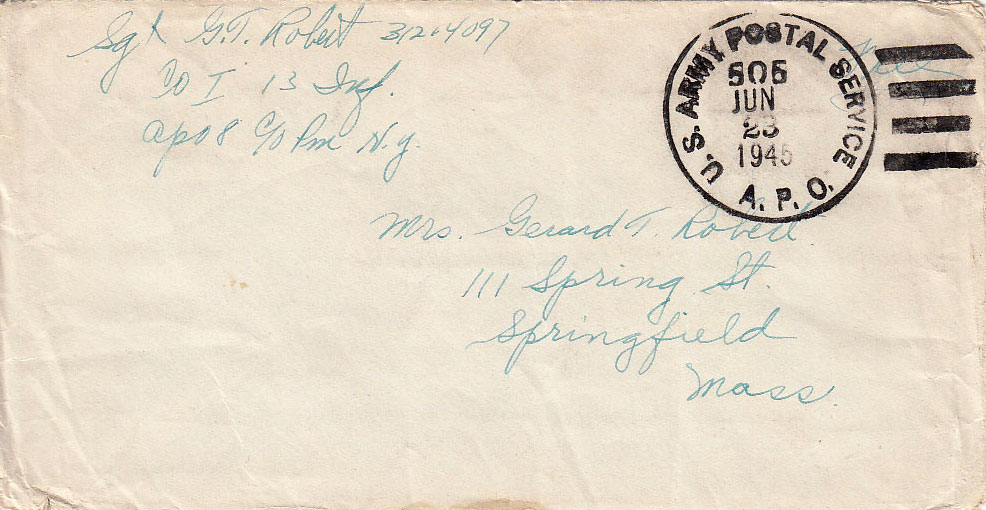 Sgt G.T. Robert 31214097
Co I 13 Inf.
apo 8 c/o Pm N.y.
U.S. ARMY POSTAL SERVICE
505
JUN
23
1945
A.P.O.
Mrs. Gerard T. Robert
111 Spring St.
Springfield
Mass.